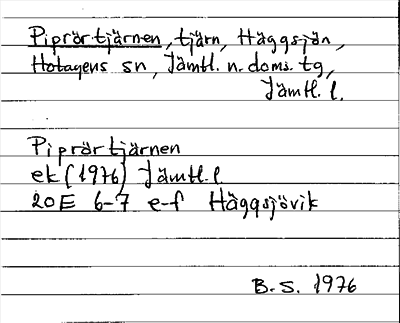 Piprörtjärnen, tjärn, Häggsjön,
Hotagens sn, Jämtl. n. doms. tg,
Jämtl. l.
Piprörtjärnen
ek (1976) Jämtl. l
20E 6-7 e-f Häggsjövik
B.S. 1976